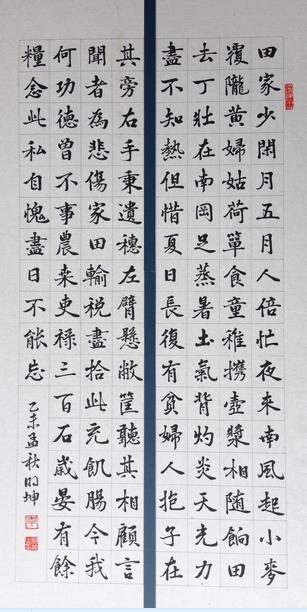 田家少閑月五月人倍忙夜来南風起小麥
覆隴黄婦姑荷簞食童稚攜壺漿相隨餉田
去丁壯在南岡足蒸暑土氣背灼炎天光力
盡不知熱但惜夏日長復有貧婦人抱子在
其旁右手秉遺穗左臂懸敝筐聽其相顧言
聞者為悲傷家田輸税盡拾此充飢腸今我
何功德曾不事農桒吏禄三百石歳晏有餘
糧念此私自愧盡日不能忘
乙未孟秋明坤